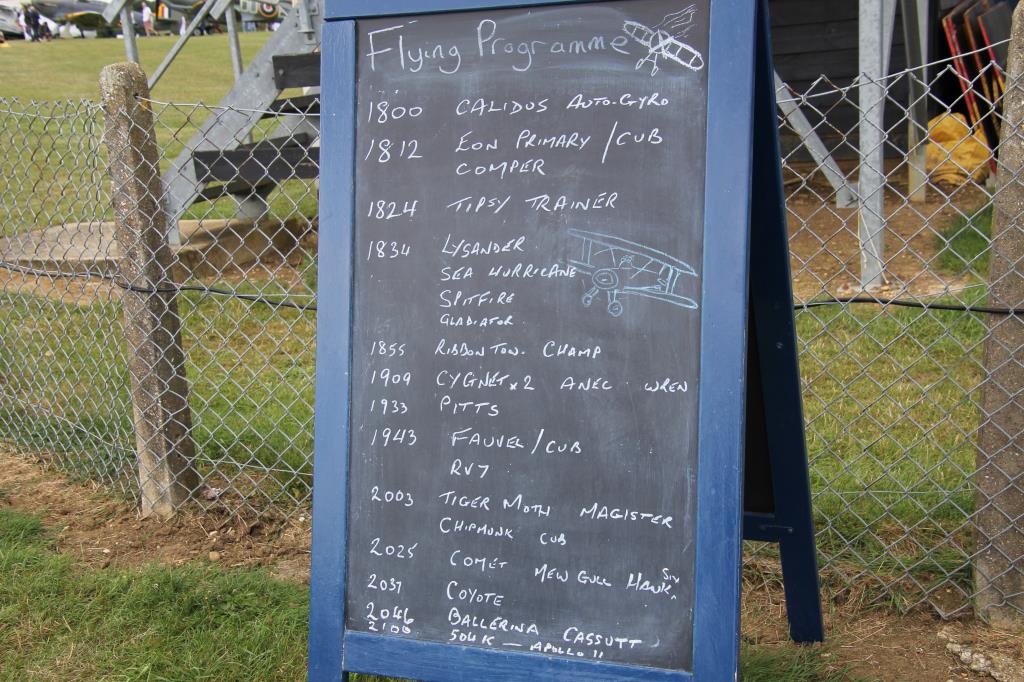 Flying Programme
1800 CALIDUS AUTO-GYRO
1812 EON PRIMARY / CUB
COMPER
1824 TIPSY TRAINER
1834 LYSANDER
SEA HURRICANE
SPITFIRE
GLADIATOR
1855 RIBBON TON. CHAMP
1909 CYGNET x 2 ANEC WREN
1933 PITTS
1943 FAUVEL / CUB
RV7
2003 TIGER MOTH MAGISTER
CHIPMUNK CUB
2025 COMET MEW GULL HAWK
2037 COYOTE
2046 BALLERINA CASSUTT
2100 504K — APOLLO 11